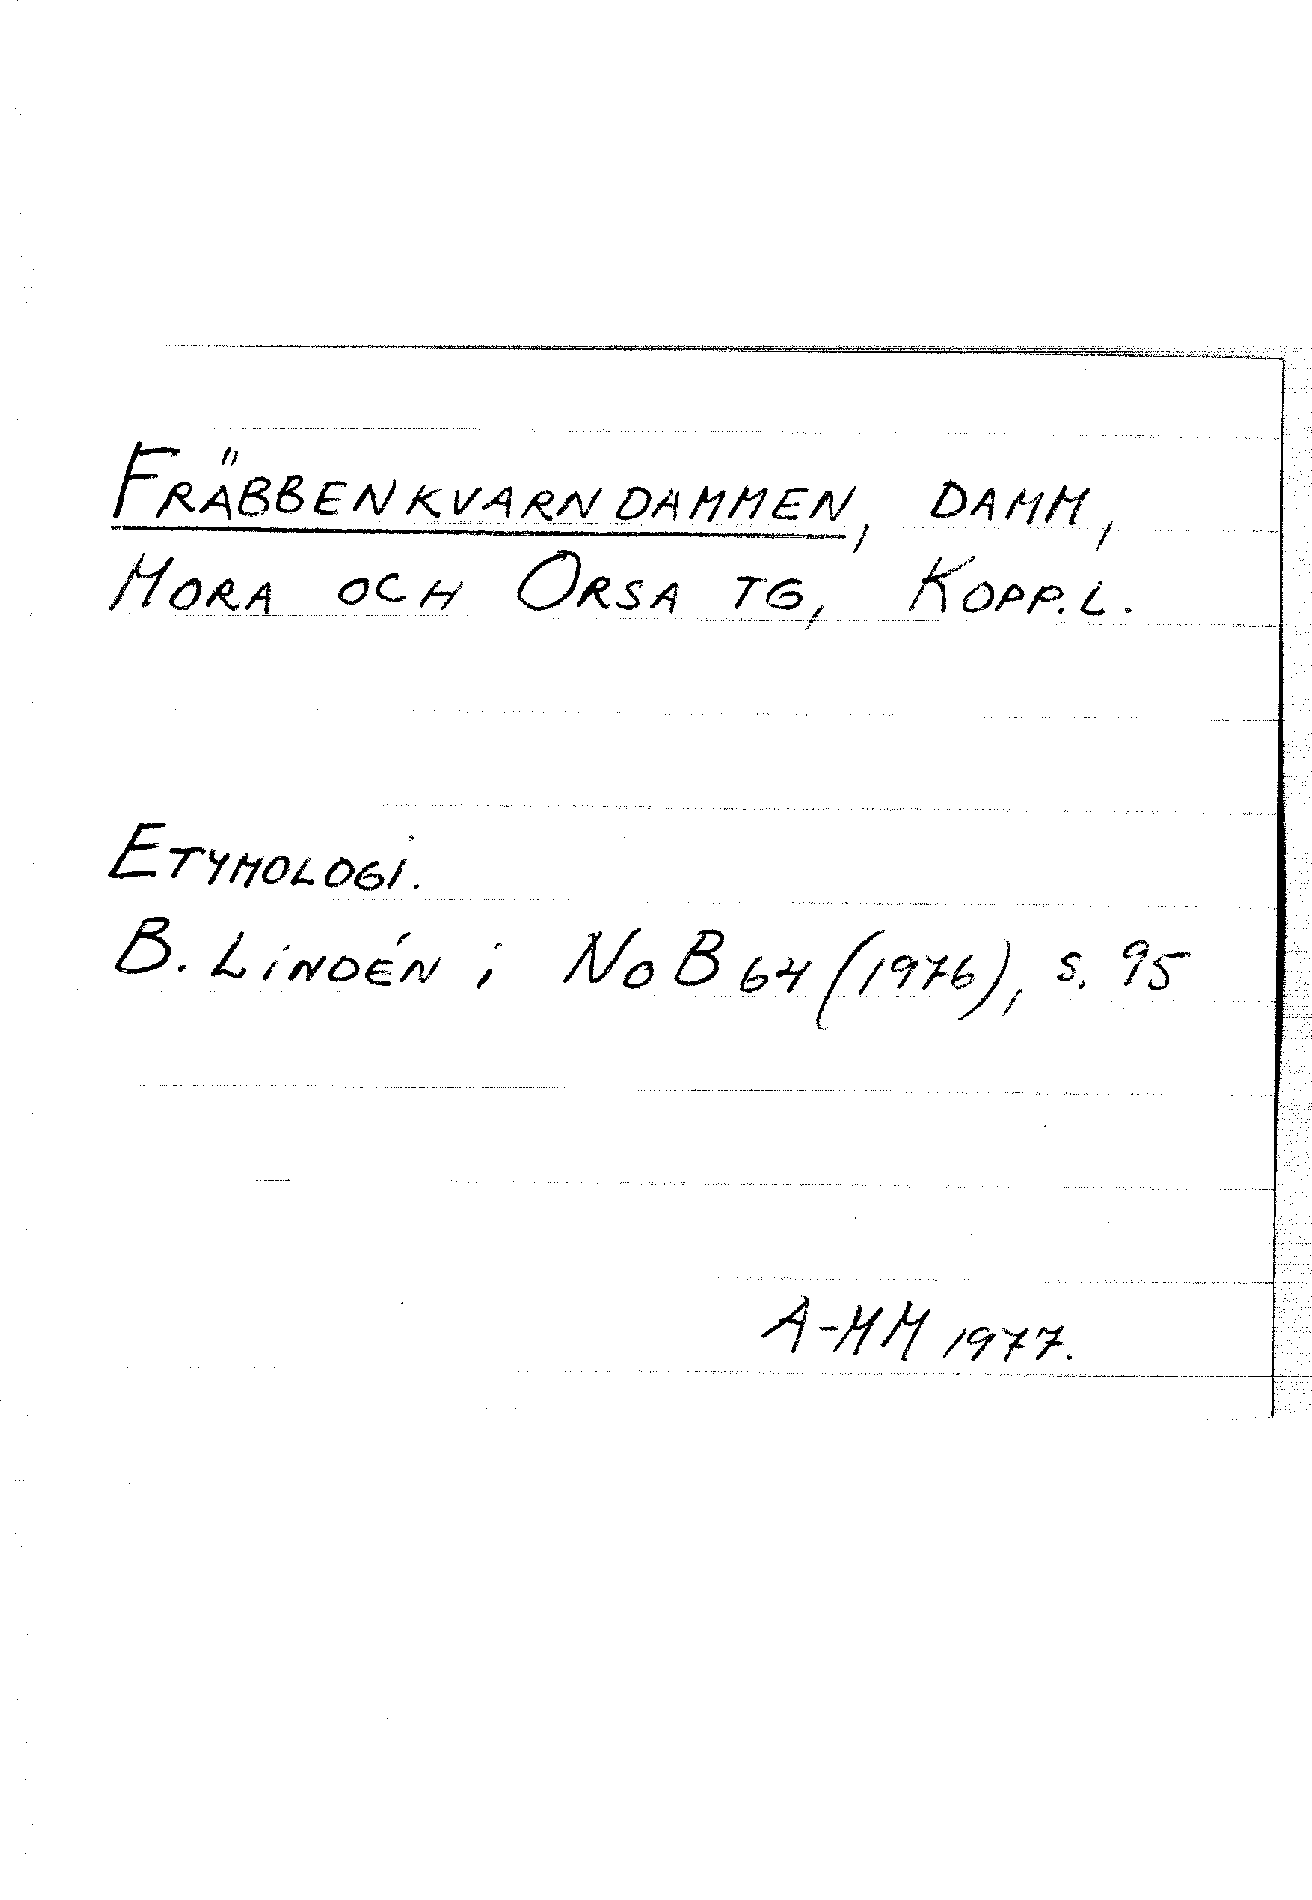 FRÄBBENKVARNDAMMEN, DAMM,
MORA OCH ORSA TG, KOPP.L.
ETYMOLOGI.
B. LINDÉN i NoB 64 (1976), s. 95
A-MM 1977.